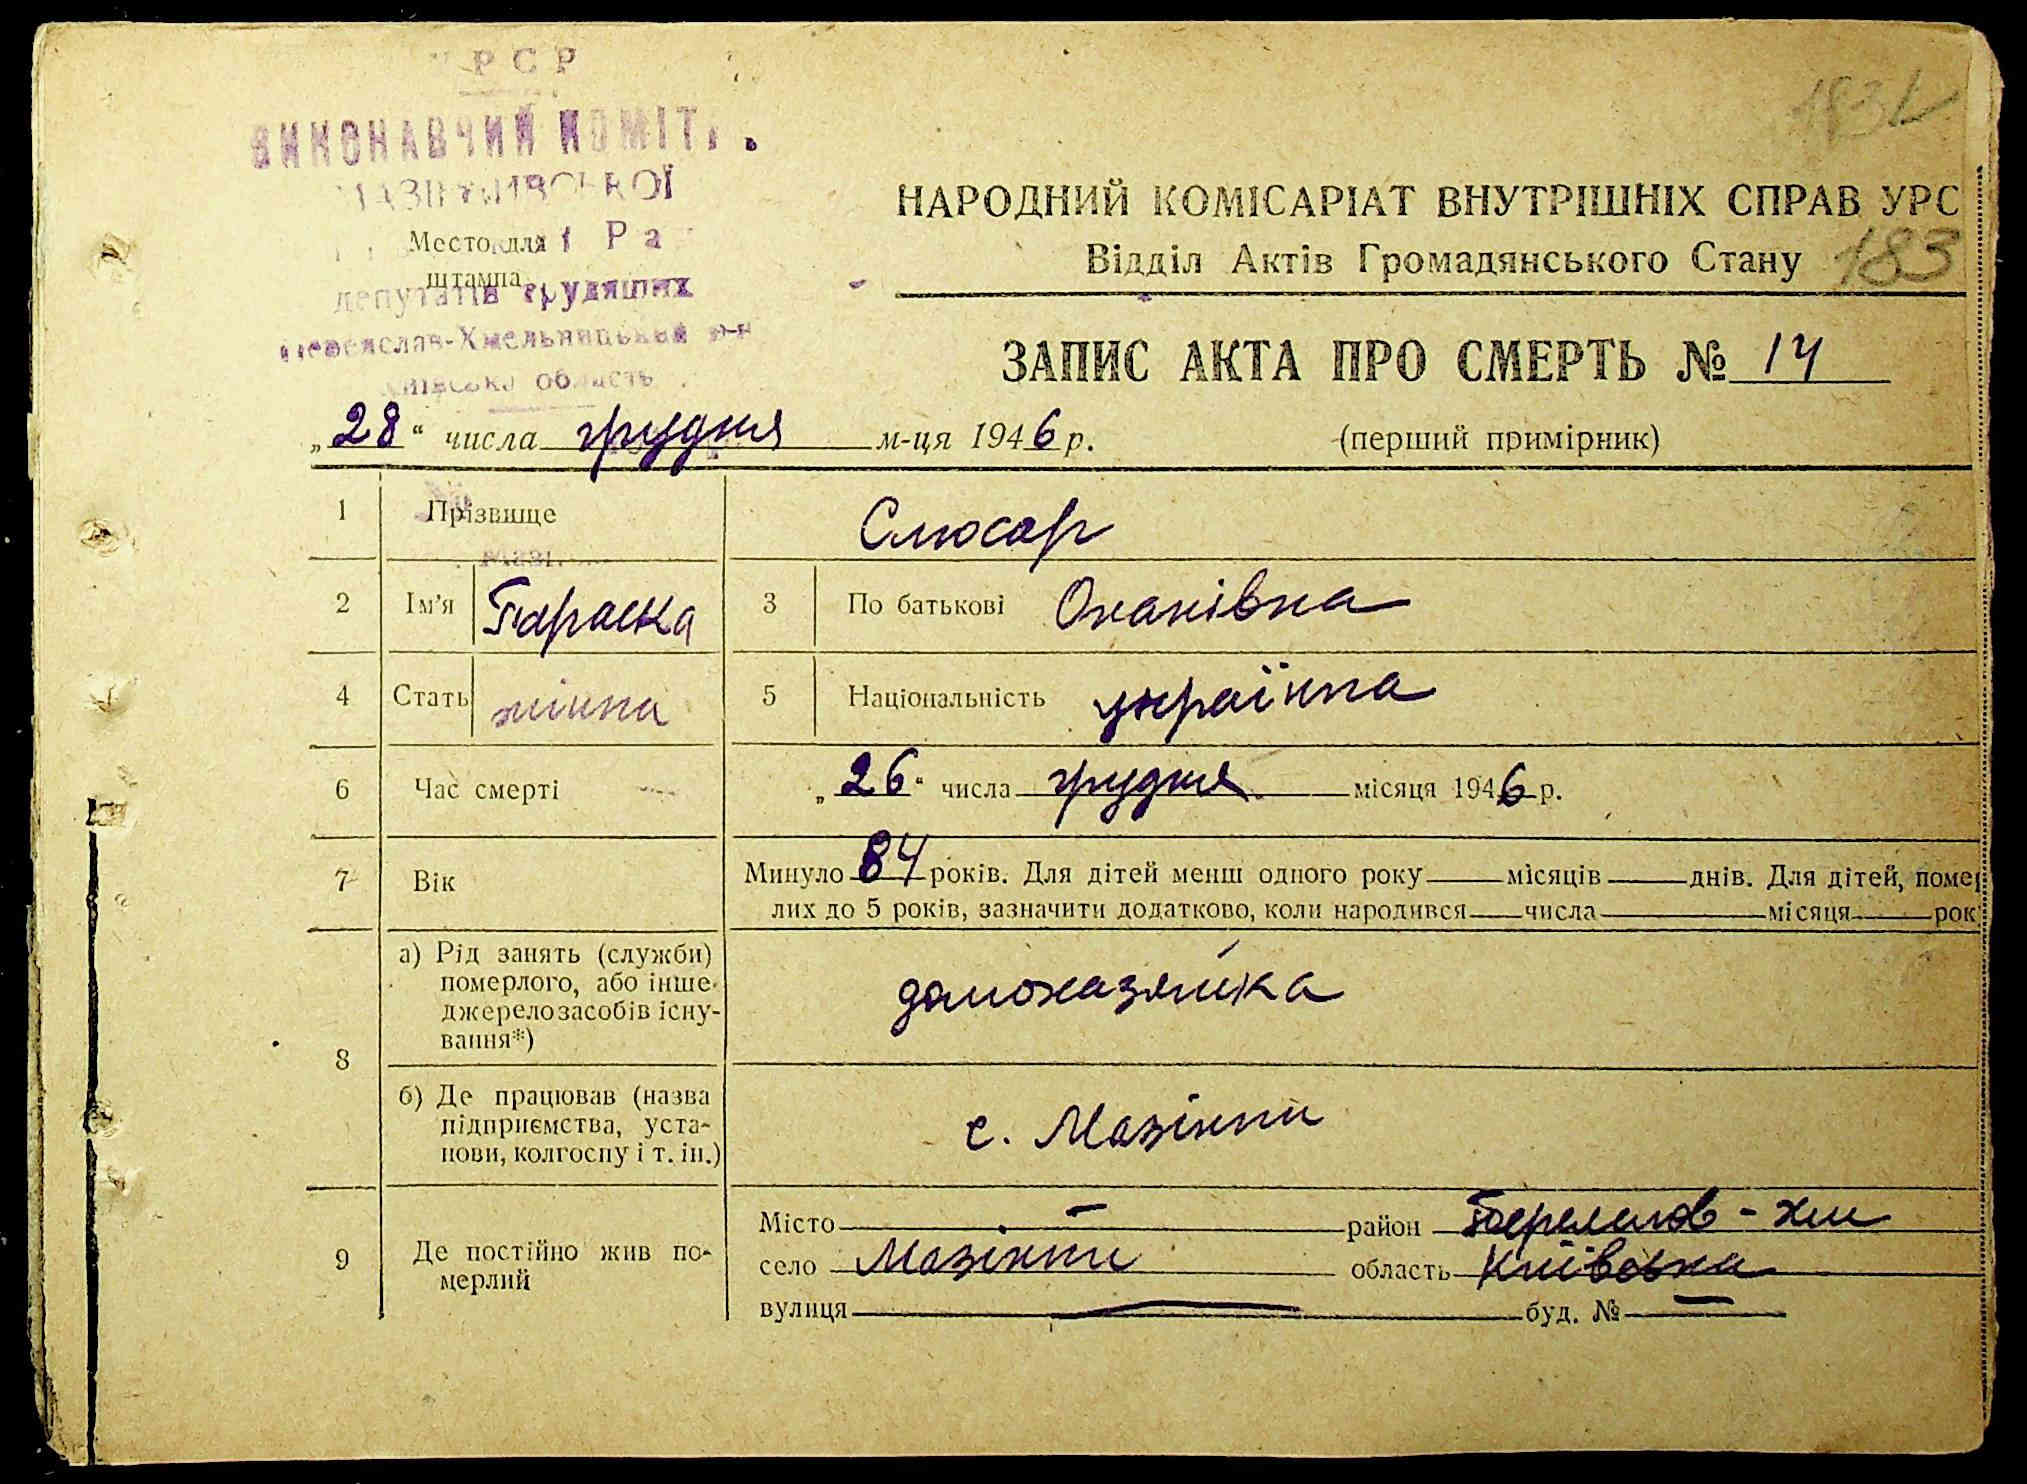 РСР
ВИКОНАВЧИЙ КОМІТ
Место для
штампа
депутатів трудящих
Переяслав-Хмельницький р-н
Київська область
183
НАРОДНИЙ КОМІСАРІАТ ВНУТРІШНІХ СПРАВ УРС
Відділ Актів Громадянського Стану 183
ЗАПИС АКТА ПРО СМЕРТЬ № 14
„28“ числа грудня м-ця 1946 р. (перший примірник)
1 Прізвище Слюсар
2 Ім'я Параска 3 По батькові Онанівна
4 Стать жінка 5 Національність українка
6 Час смерті „26“ числа грудня місяця 1946 р.
7 Вік Минуло 84 років. Для дітей менш одного року місяців днів. Для дітей, помер
лих до 5 років, зазначити додатково, коли народився числа місяця рок
8 а) Рід занять (служби)
померлого, або інше
джерело засобів існу-
вання*)
домохазяйка
б) Де працював (назва
підприємства, уста-
нови, колгоспу і т. ін.)
с. Мазінки
9 Де постійно жив по-
мерлий
Місто — район Переяслов-Хм
село Мазінки область Київська
вулиця — буд. № —